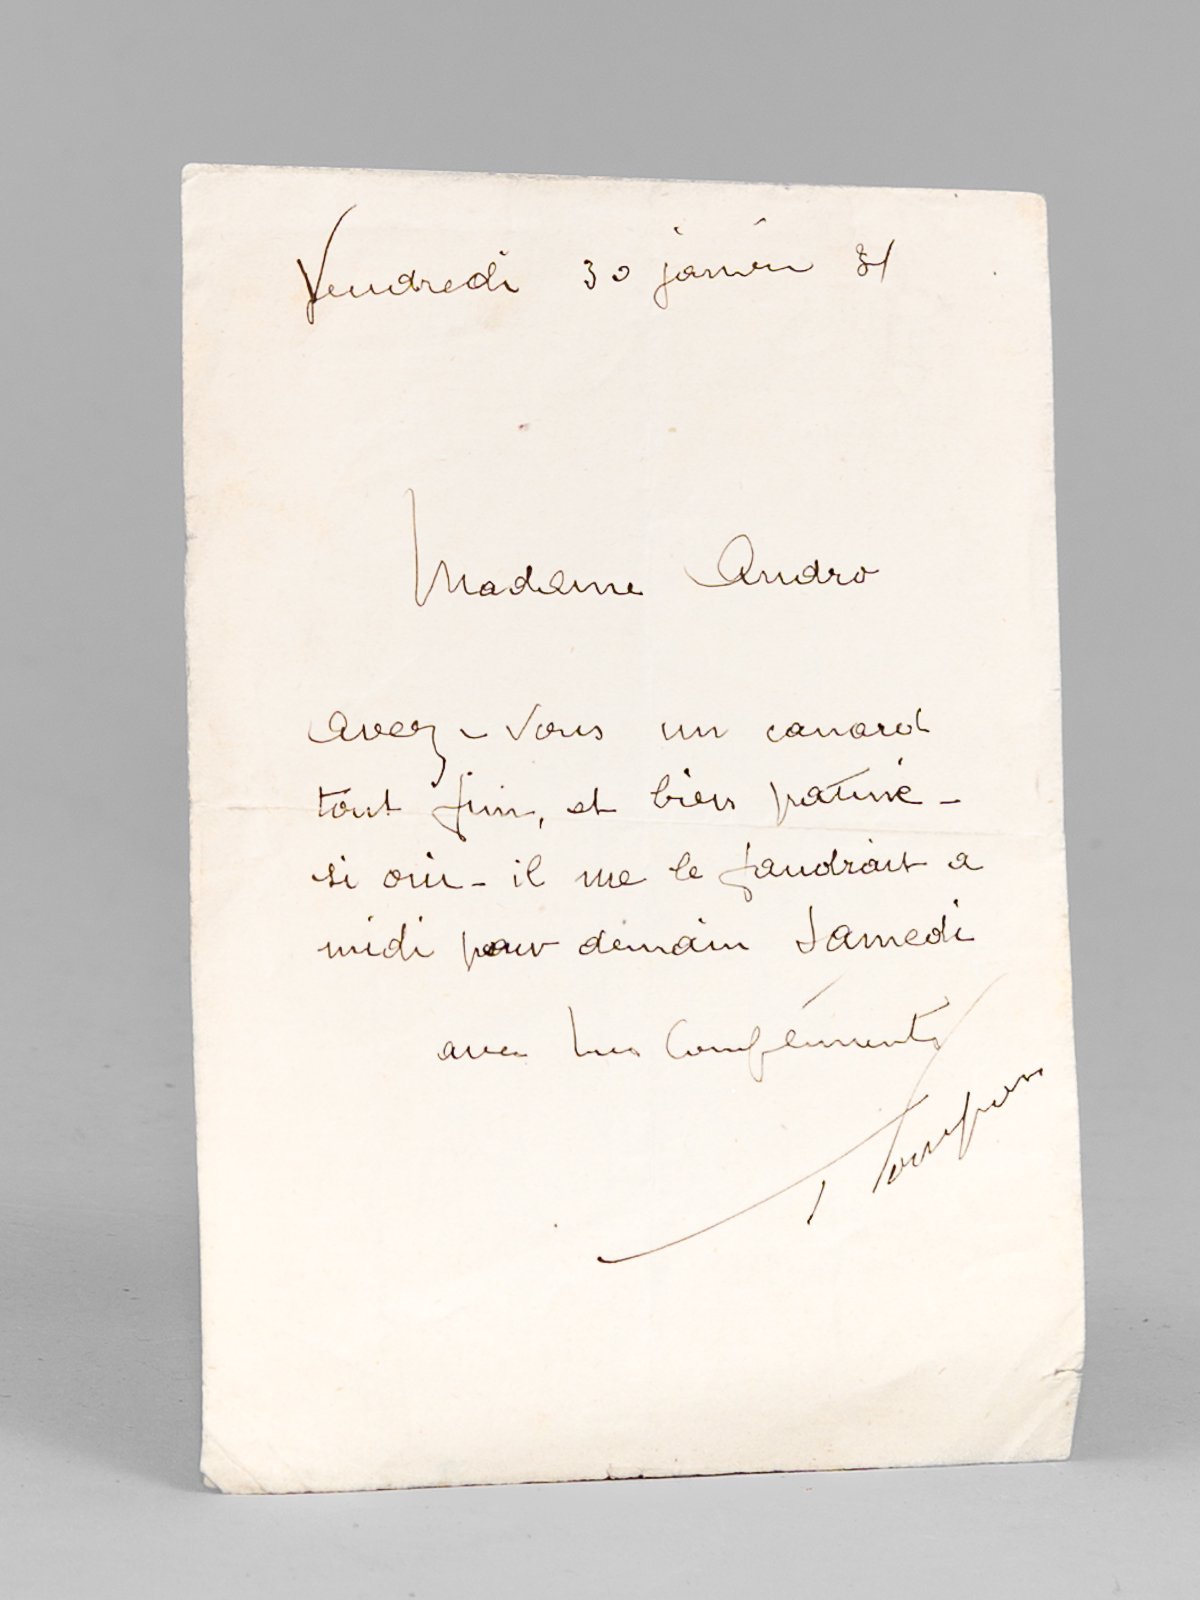 Vendredi 30 janvier 31
Madame Andro
avez-vous un canard
tout fin, et bien patiné -
si oui - il me le faudrait a
midi pour demain Samedi
avec mes Compliments
Pompon